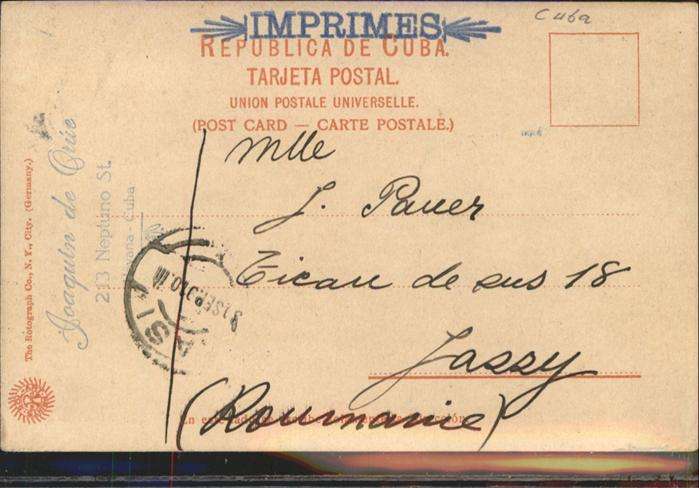 Cuba
IMPRIMES
REPUBLICA DE CUBA.
TARJETA POSTAL.
UNION POSTALE UNIVERSELLE.
(POST CARD — CARTE POSTALE.)
Mlle
J. Pauer
Ticau de sus 18
Jassy
(Roumanie)
Joaquin de
213 Neptuno St.
Habana - Cuba
The Rotograph Co., N. Y., City. (Germany.)